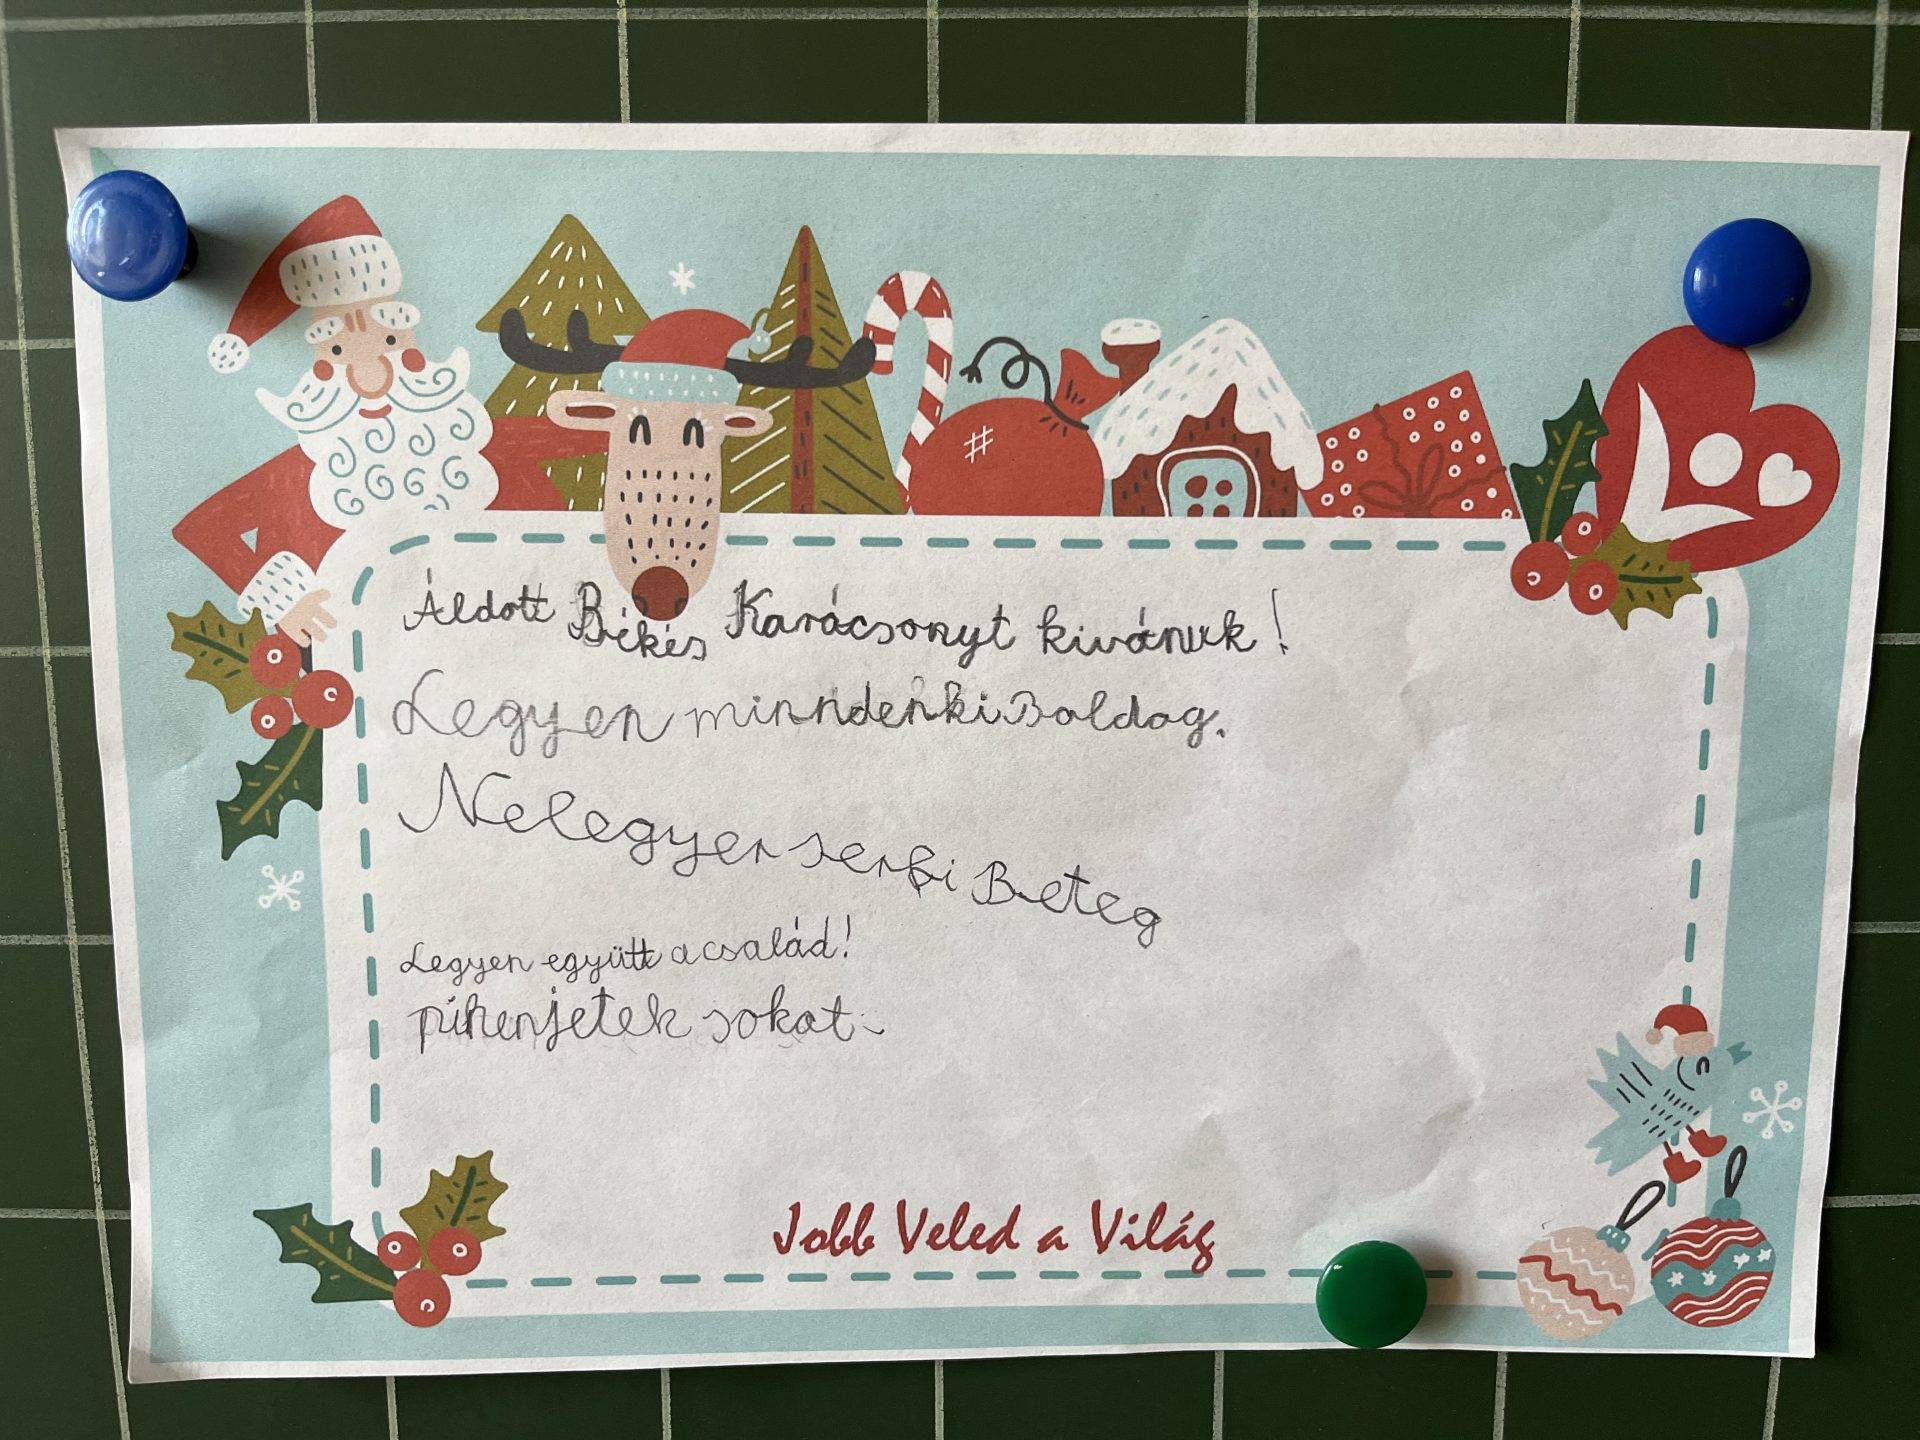 Áldott Békés Karácsonyt kivánuk!
Legyen minndenki Boldog.
Nelegyen serki Beteg
Legyen együtt a család!
pihenjetek sokat.
Jobb Veled a Világ